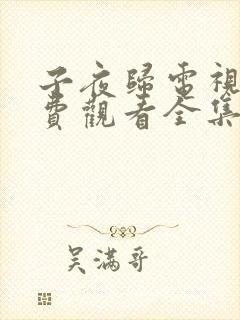 子夜歸電視
費觀看全集
吴滿哥